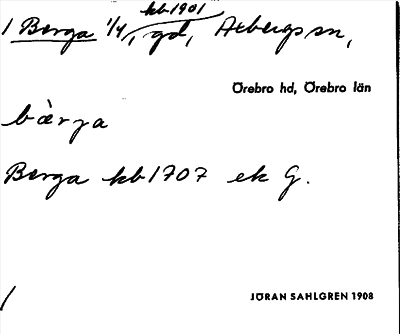 kb 1901
1 Berga 1/4, gd, Axbergs sn,
Örebro hd, Örebro län
bæ̀rja
Berga kb 1707 ek G.
/
JÖRAN SAHLGREN 1908